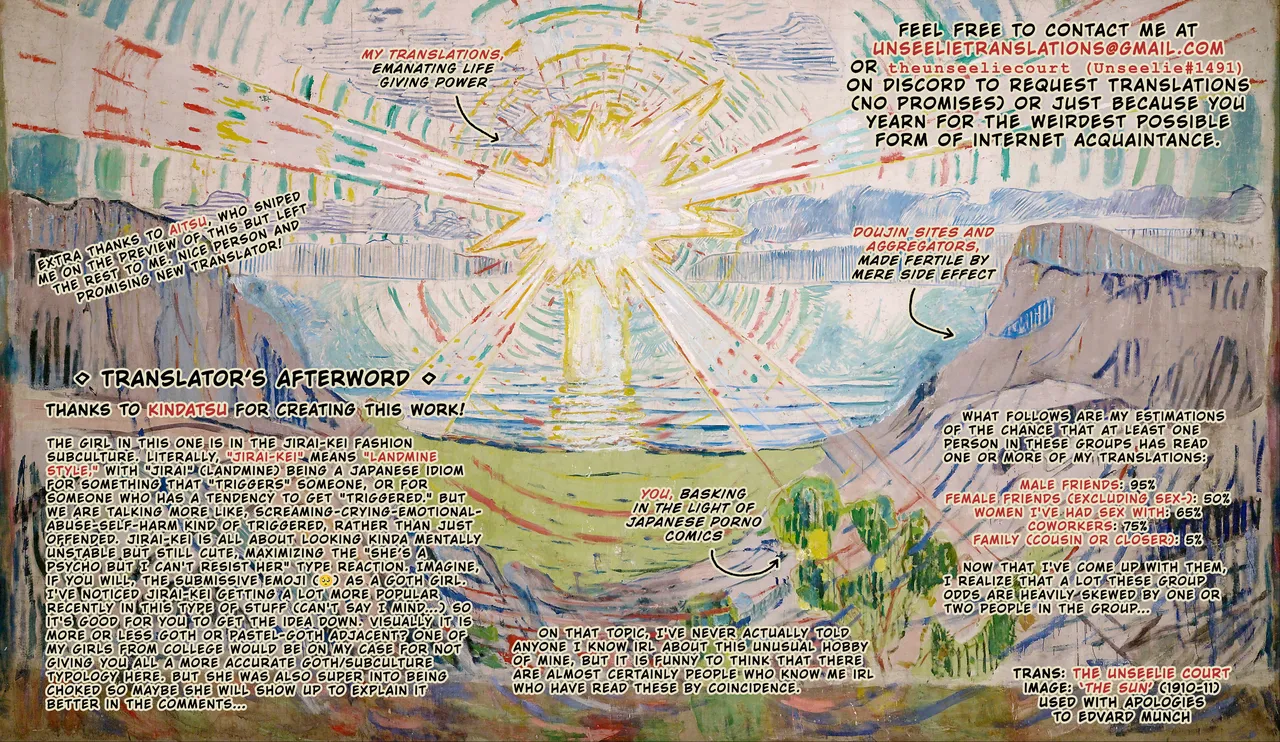 MY TRANSLATIONS,
EMANATING LIFE
GIVING POWER
FEEL FREE TO CONTACT ME AT
UNSEELIETRANSLATIONS@GMAIL.COM
OR theunseeliecourt (Unseelie#1491)
ON DISCORD TO REQUEST TRANSLATIONS
(NO PROMISES) OR JUST BECAUSE YOU
YEARN FOR THE WEIRDEST POSSIBLE
FORM OF INTERNET ACQUAINTANCE.
EXTRA THANKS TO AITSU, WHO SNIPED
ME ON THE PREVIEW OF THIS BUT LEFT
THE REST TO ME. NICE PERSON AND
PROMISING NEW TRANSLATOR!
DOUJIN SITES AND
AGGREGATORS,
MADE FERTILE BY
MERE SIDE EFFECT
◇ TRANSLATOR'S AFTERWORD ◇
THANKS TO KINDATSU FOR CREATING THIS WORK!
THE GIRL IN THIS ONE IS IN THE JIRAI-KEI FASHION
SUBCULTURE. LITERALLY, "JIRAI-KEI" MEANS "LANDMINE
STYLE," WITH "JIRAI" (LANDMINE) BEING A JAPANESE IDIOM
FOR SOMETHING THAT "TRIGGERS" SOMEONE, OR FOR
SOMEONE WHO HAS A TENDENCY TO GET "TRIGGERED." BUT
WE ARE TALKING MORE LIKE, SCREAMING-CRYING-EMOTIONAL-
ABUSE-SELF-HARM KIND OF TRIGGERED, RATHER THAN JUST
OFFENDED. JIRAI-KEI IS ALL ABOUT LOOKING KINDA MENTALLY
UNSTABLE BUT STILL CUTE, MAXIMIZING THE "SHE'S A
PSYCHO BUT I CAN'T RESIST HER" TYPE REACTION. IMAGINE,
IF YOU WILL, THE SUBMISSIVE EMOJI (🥺) AS A GOTH GIRL.
I'VE NOTICED JIRAI-KEI GETTING A LOT MORE POPULAR
RECENTLY IN THIS TYPE OF STUFF (CAN'T SAY I MIND...) SO
IT'S GOOD FOR YOU TO GET THE IDEA DOWN. VISUALLY IT IS
MORE OR LESS GOTH OR PASTEL-GOTH ADJACENT? ONE OF
MY GIRLS FROM COLLEGE WOULD BE ON MY CASE FOR NOT
GIVING YOU ALL A MORE ACCURATE GOTH/SUBCULTURE
TYPOLOGY HERE. BUT SHE WAS ALSO SUPER INTO BEING
CHOKED SO MAYBE SHE WILL SHOW UP TO EXPLAIN IT
BETTER IN THE COMMENTS...
YOU, BASKING
IN THE LIGHT OF
JAPANESE PORNO
COMICS
ON THAT TOPIC, I'VE NEVER ACTUALLY TOLD
ANYONE I KNOW IRL ABOUT THIS UNUSUAL HOBBY
OF MINE, BUT IT IS FUNNY TO THINK THAT THERE
ARE ALMOST CERTAINLY PEOPLE WHO KNOW ME IRL
WHO HAVE READ THESE BY COINCIDENCE.
WHAT FOLLOWS ARE MY ESTIMATIONS
OF THE CHANCE THAT AT LEAST ONE
PERSON IN THESE GROUPS HAS READ
ONE OR MORE OF MY TRANSLATIONS:
MALE FRIENDS: 95%
FEMALE FRIENDS (EXCLUDING SEX-): 50%
WOMEN I'VE HAD SEX WITH: 65%
COWORKERS: 75%
FAMILY (COUSIN OR CLOSER): 5%
NOW THAT I'VE COME UP WITH THEM,
I REALIZE THAT A LOT THESE GROUP
ODDS ARE HEAVILY SKEWED BY ONE OR
TWO PEOPLE IN THE GROUP...
TRANS: THE UNSEELIE COURT
IMAGE: 'THE SUN' (1910-11)
USED WITH APOLOGIES
TO EDVARD MUNCH